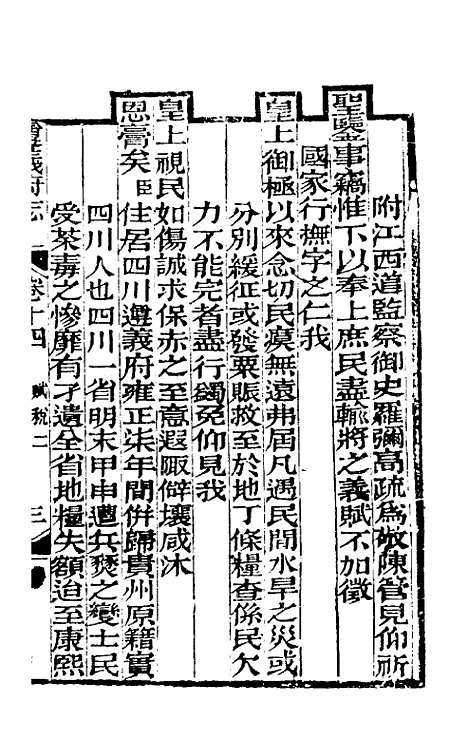 附江西道監察御史羅彌高疏為敬陳管見仰祈
聖鑒事竊惟下以奉上庶民盡輸將之義賦不加徵
國家行撫字之仁我
皇上御極以來念切民瘼無遠弗屆凡遇民間水旱之災或
分別緩征或發粟賑救至於地丁條糧查係民欠
力不能完者盡行蠲免仰見我
皇上視民如傷誠求保赤之至意遐陬僻壤咸沐
恩膏矣臣住居四川遵義府雍正柒年間併歸貴州原籍實
四川人也四川一省明末甲申遭兵燹之變士民
受荼毒之慘靡有孑遺全省地糧失額迨至康熙
遵義府志 卷十四 賦稅二 三